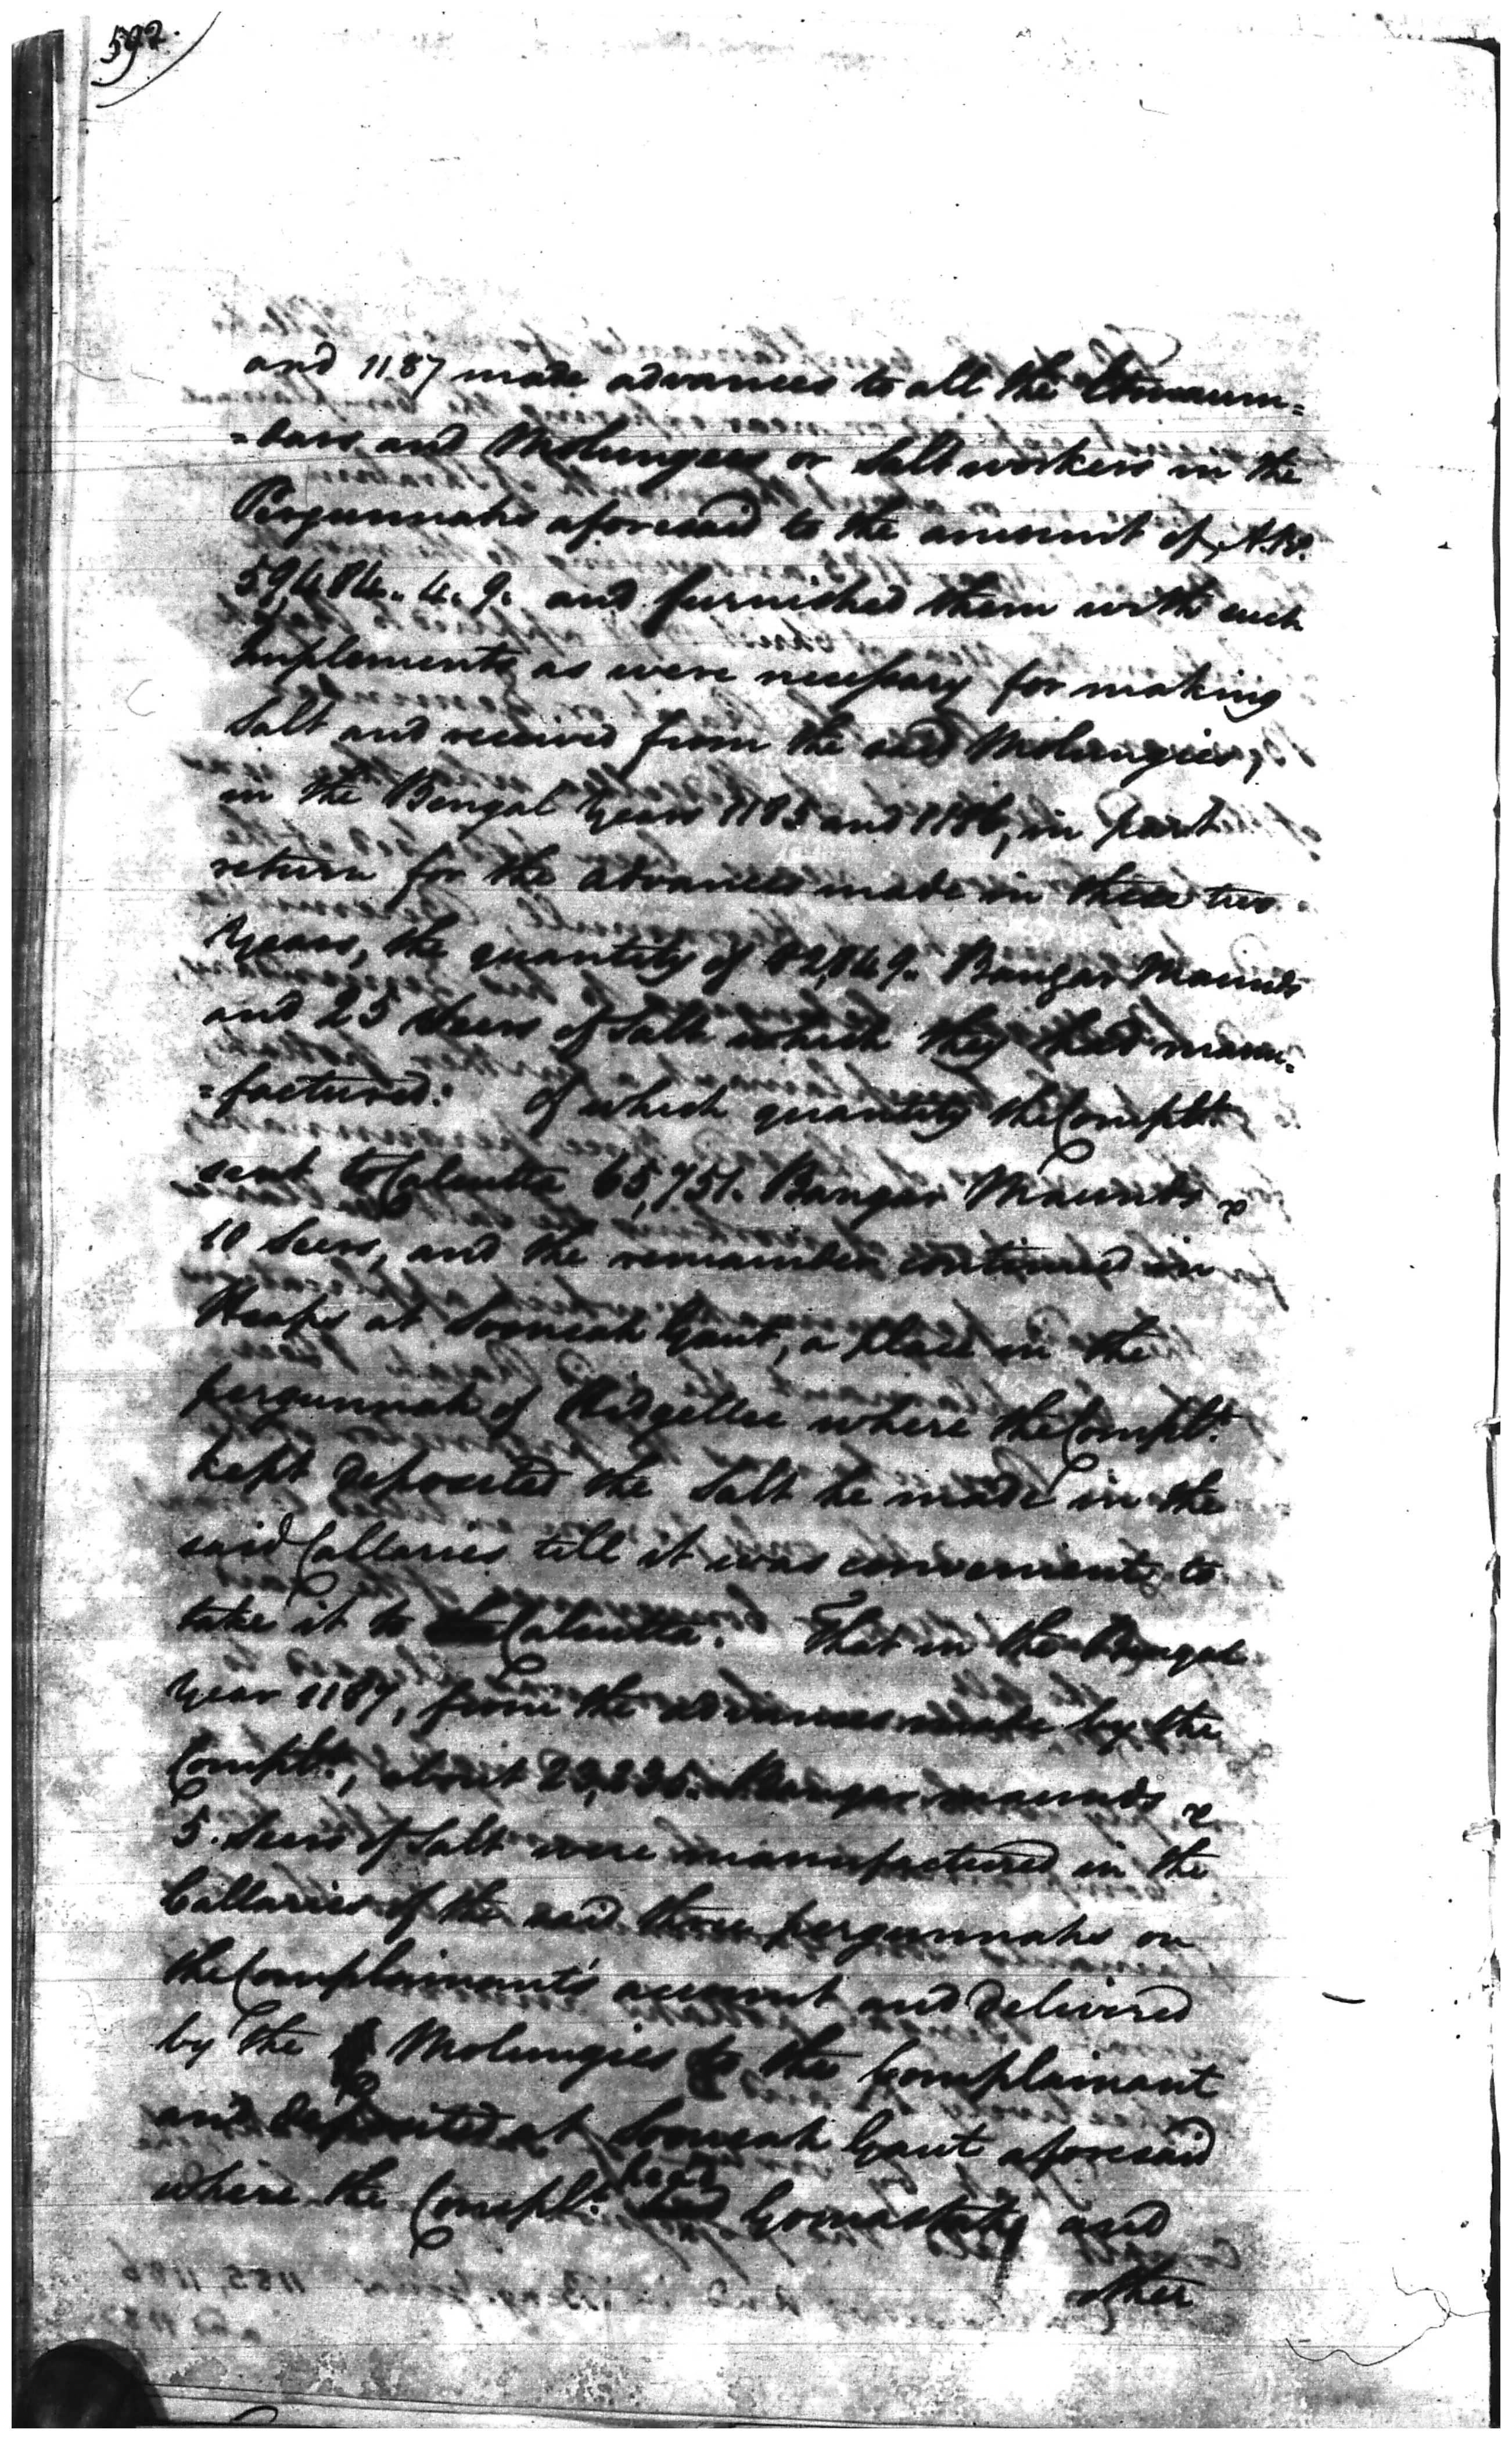 592.
and 1187 made advances to all the
=dars and Molungees or Salt workers in the
Pergunnahs aforesaid to the amount of A.Rs.
59,484.. 4. 9. and furnished them with such
Implements as were necessary for making
Salt and received from the said Molungies,
in the Bengal Years 1185 and 1186, in part
return for the advances made in these two
Years, the quantity of 82,849.. Bangar Maunds
and 25 Seers of Salt which they had manu=
=factured: Of which quantity the Complt
sent to Calcutta 65,751. Bangar Maunds &
10 Seers, and the remainder continued in
Heaps at Sooneah Gaut, a place in the
pergunnah of Hidgellee where the Complt.
kept deposited the Salt he made in the
said Collaries till it was convenient to
take it to Calcutta. That in the Bengal
Year 1187, from the advances made by the
Complt., about Bangar maunds &
5. Seers of Salt were manufactured in the
Collaries of the said three pergunnahs on
the Complainants account and delivered
by the Molungies to the Complainant
and deposited at Sooneah Gaut aforesaid
where the Complt. had Gomastahs and
other